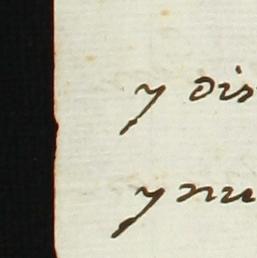 y dis
y nu